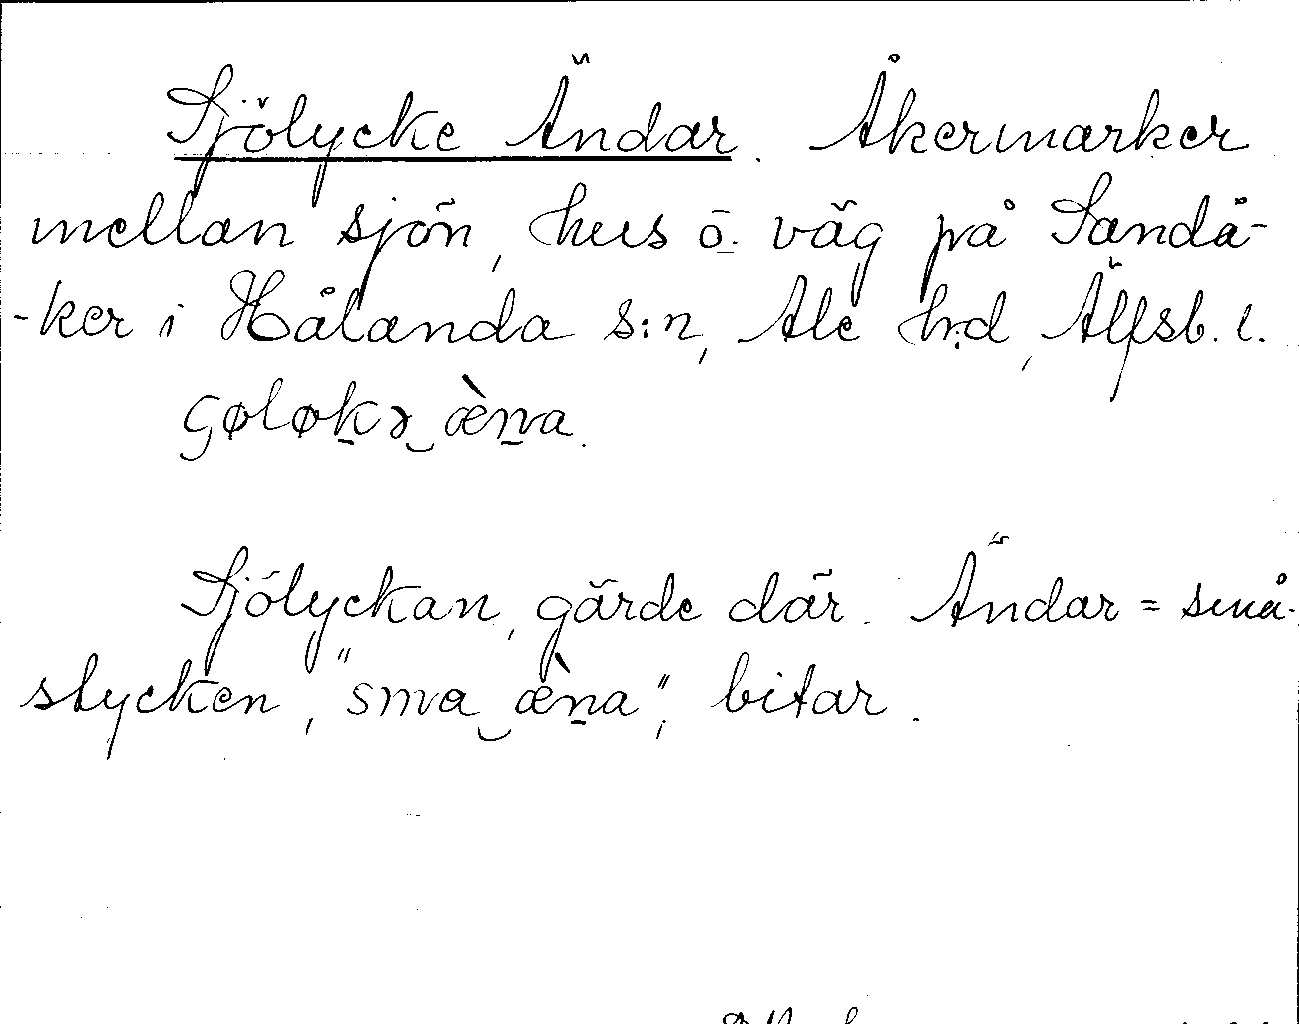 Sjölycke Ändar. Åkermarker
mellan sjön, hus o. väg på Sandå-
-ker i Hålanda s:n, Ale h:d, Älfsb. l.
çøløkə‿æ̀na.
Sjölyckan, gärde där. Ändar = små-
stycken, "sma‿æ̀na", bitar.